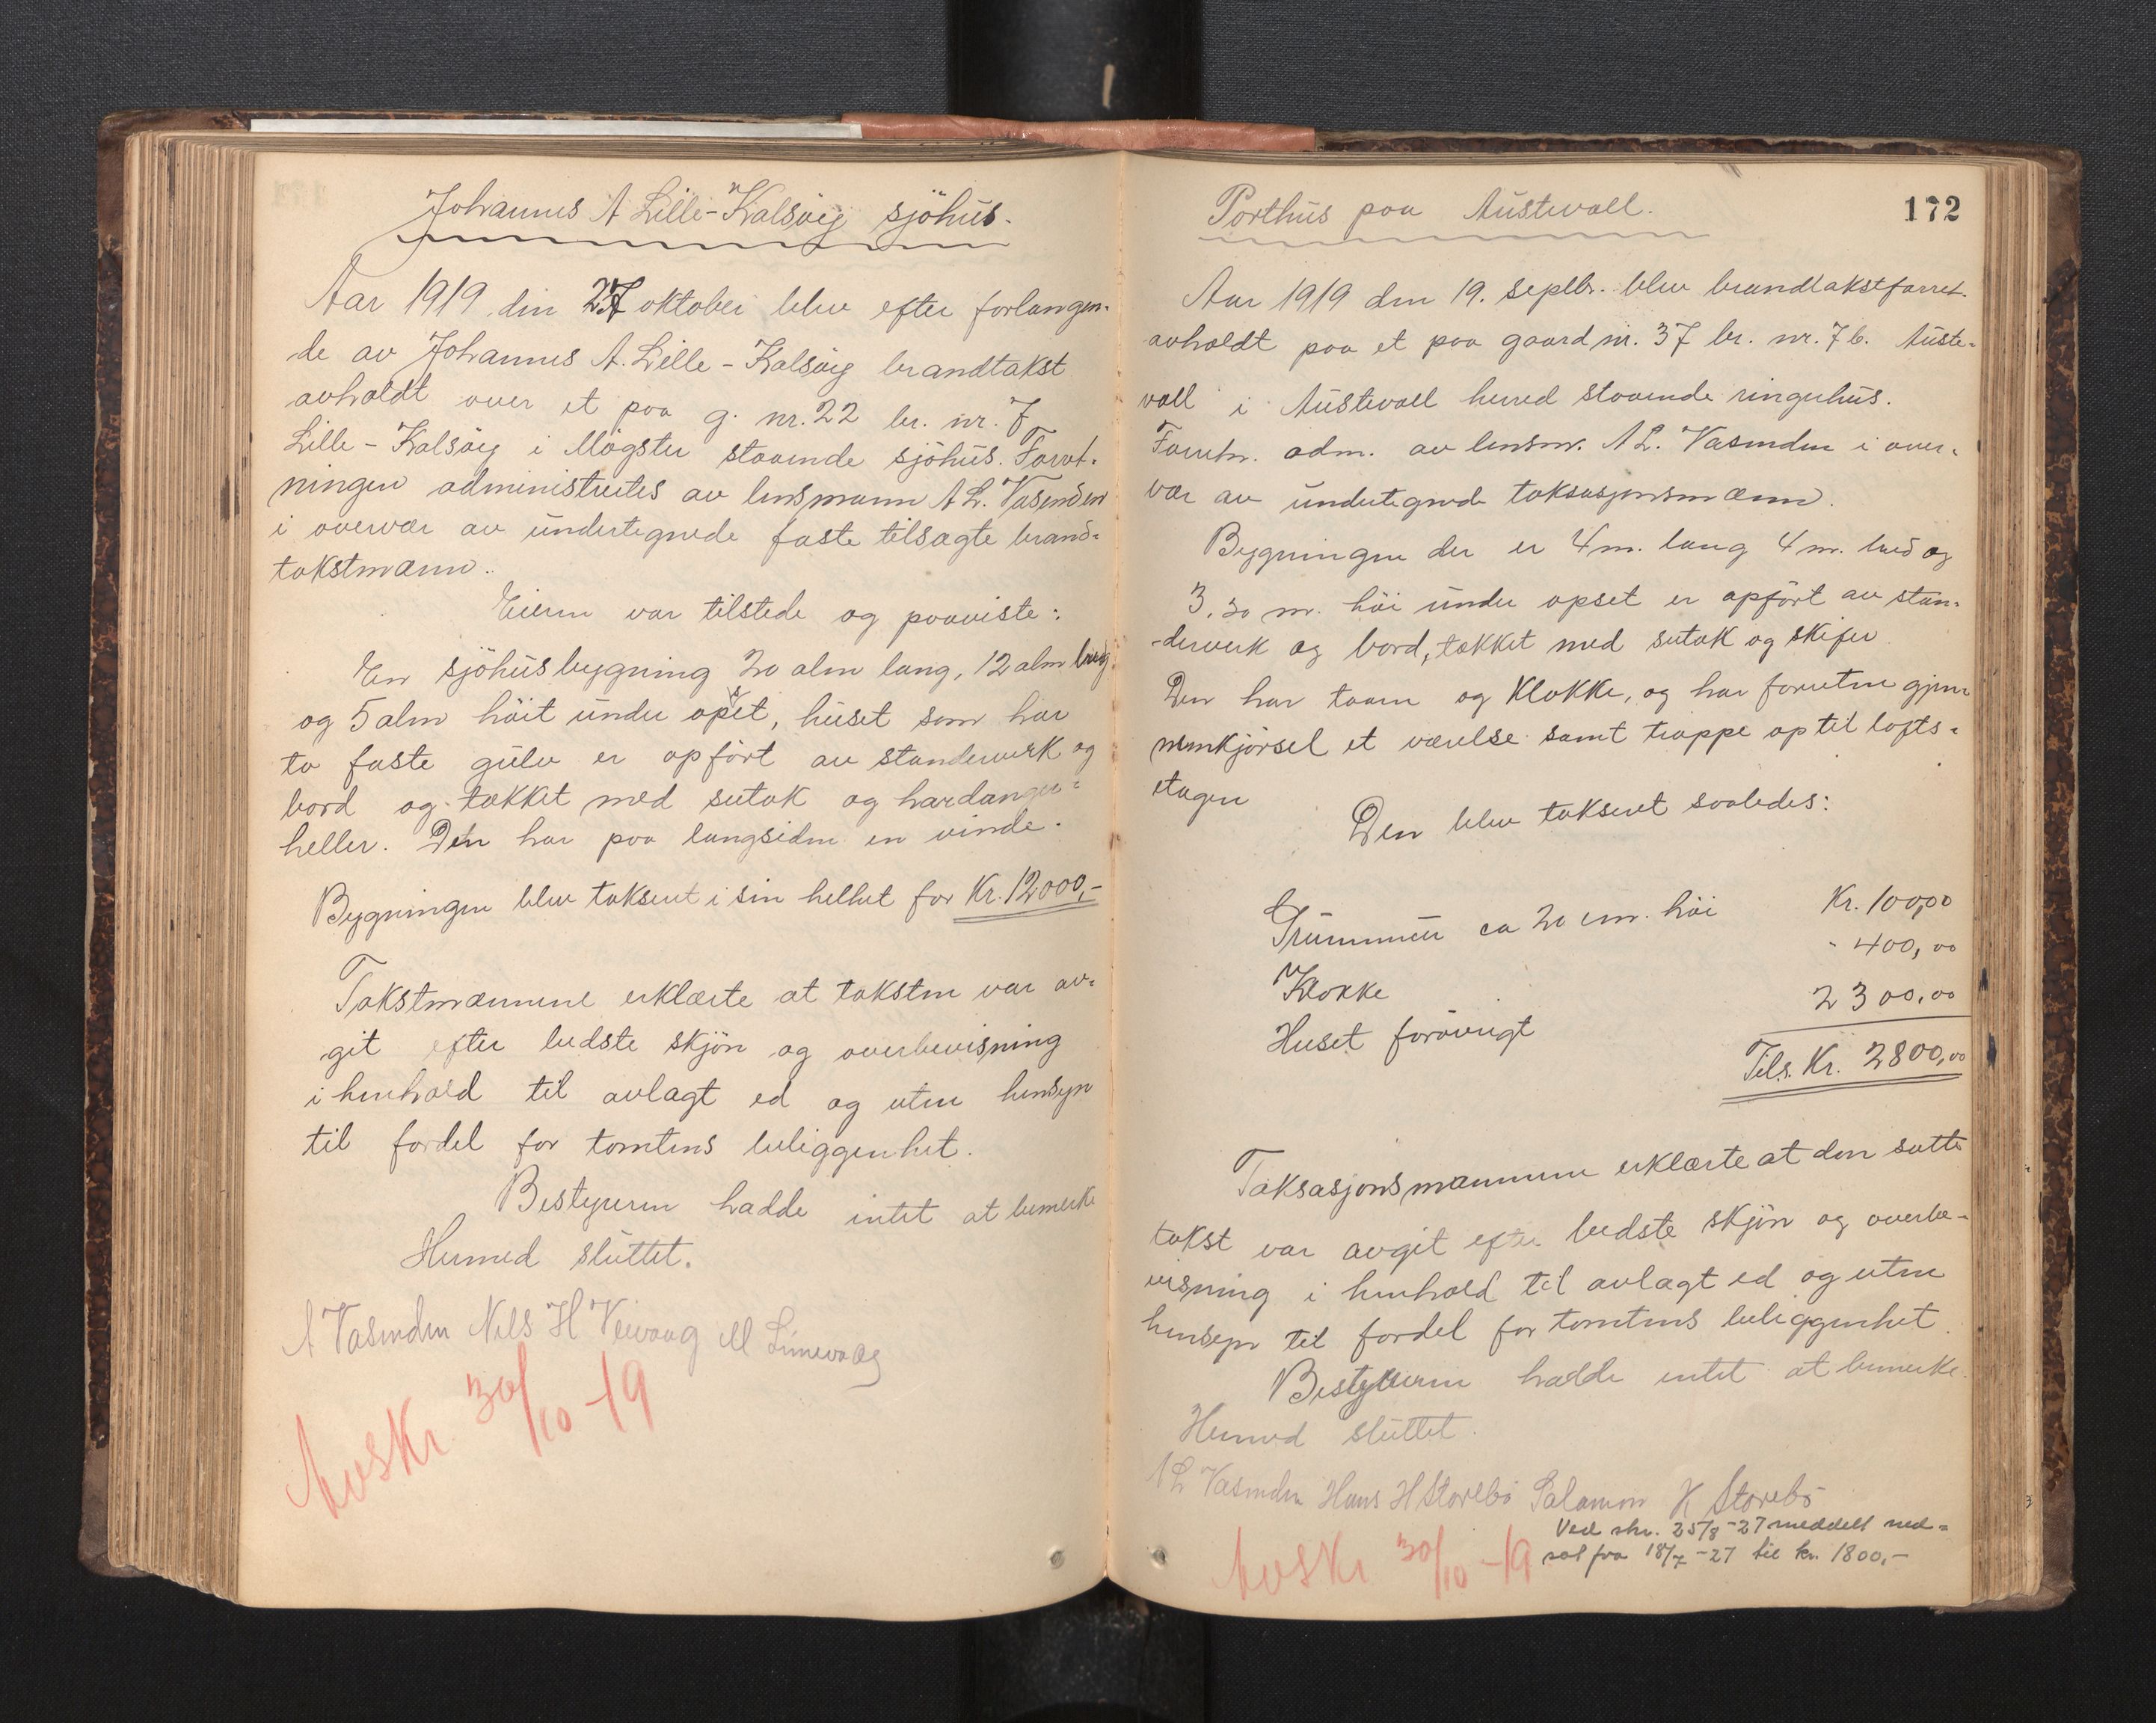 Johannes A Lille-Kalsöig sjöhus.
Aar 1919 den 27 oktober blev efter forlangen-
de av Johannes A. Lille-Kalsöig brandtakst
avholdt over et paa g. nr. 22 br. nr. 7
Lille-Kalsöig i Mögster staaende sjöhus. Forret-
ningen administrertes av lensmann A L. Vasenden
i overvær av undertegnede faste tilsagte brand-
takstmænn.
Eieren var tilstede og paaviste:
En sjöhusbygning 20 alm lang, 12 alm bred
og 5 alm höit under opset, huset som har
to faste gulv er opfört av standerverk og
bord og tækket med sutak og hardanger-
heller. Den har paa langsiden en vinde.
Bygningen blev taksert i sin helhet for Kr. 12000,-
Takstmænnene erklærte at taksten var av-
git efter bedste skjön og overbevisning
i henhold til avlagt ed og uten hensyn
til fordel for tomtens beliggenhet.
Bestyreren hadde intet at bemerke
Hermed sluttet.
A Vasenden Nils H Veivaag M Limevaag
Avskr 30/10 -19
172
Porthus paa Austevoll.
Aar 1919 den 19. septbr. blev brandtakstforret.
avholdt paa et paa gaard nr. 37 br. nr. 7 b. Auste-
voll i Austevoll herred staaende ringerhus.
Forretn. adm. av lensm. A L. Vasenden i over-
vær av undertegnede taksasjonsmænn.
Bygningen der er 4 m. lang 4 m. bred og
3.30 m. höi under opset er opfört av stan-
-derverk og bord, tækket med sutak og skifer
Den har taarn og Klokke, og har foruten gjen-
nemkjörsel et værelse samt trappe op til lofts-
etagen
Den blev taksert saaledes:
Grunnmur ca 20 cm. höi Kr. 100,00
Klokke - 400,00
Huset forövrigt 2300,00
Tils. Kr. 2800,00
Taksasjonsmænnene erklærte at den satte
takst var avgit efter bedste skjön og overbe-
visning i henhold til avlagt ed og uten
hensyn til fordel for tomtens beliggenhet.
Bestyreren hadde intet at bemerke.
Hermed sluttet.
A L Vasenden Hans H Storebö Salamon K Storebö
Ved skr. 25/8 -27 meddelt ned-
sat fra 18/7 -27 til kr. 1800,-
Avskr 30/10 -19